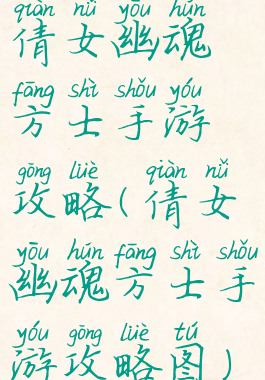 qiàn nǚ yōu hún
倩女幽魂
fāng shì shǒu yóu
方士手游
gōng lüè qiàn nǚ
攻略(倩女
yōu hún fāng shì shǒu
幽魂方士手
yóu gōng lüè tú
游攻略图)